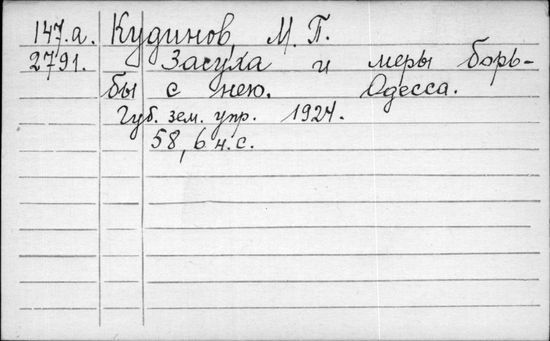 147.а. Кудинов М. П.
2791. Засуха и меры борь-
бы с нею. Одесса.
Губ. зем. упр. 1924.
58, 6 н. с.